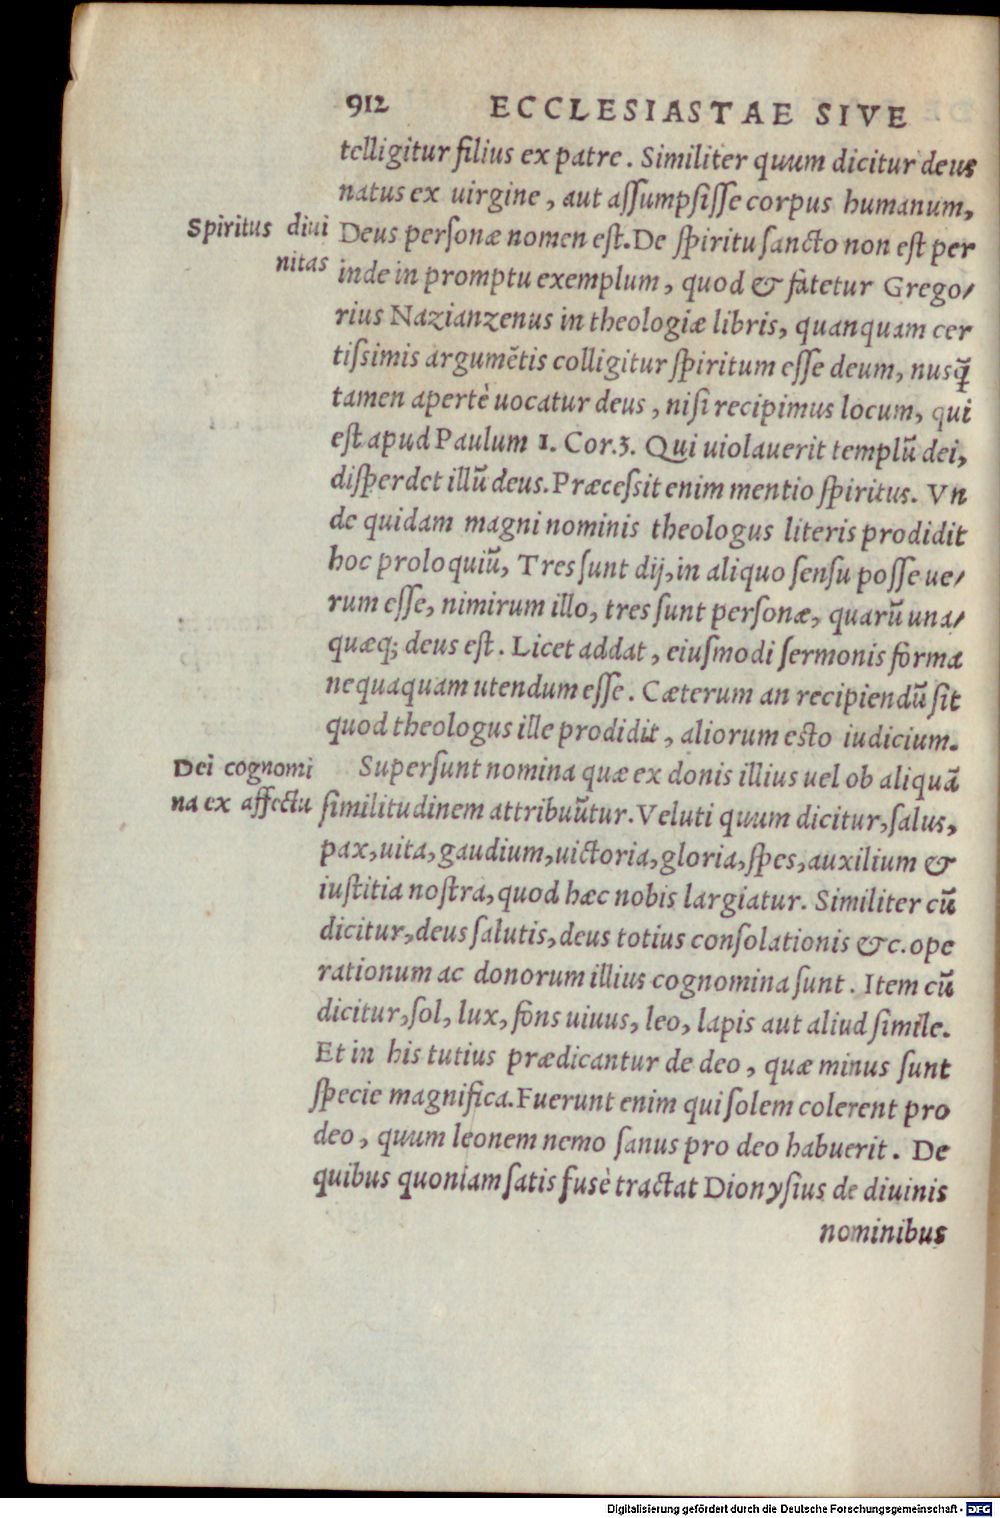 912 ECCLESIASTAE SIVE
telligitur filius ex patre. Similiter quum dicitur deus
natus ex uirgine, aut aſſumpſiſſe corpus humanum,
Spiritus diui
nitas
Deus perſonæ nomen eſt. De ſpiritu ſancto non eſt per
inde in promptu exemplum, quod & fatetur Grego/
rius Nazianzenus in theologiæ libris, quanquam cer
tiſsimis argumẽtis colligitur ſpiritum eſſe deum, nusq̃
tamen apertè uocatur deus, niſi recipimus locum, qui
eſt apud Paulum 1. Cor.3. Qui uiolauerit templũ dei,
diſperdet illũ deus. Præceſsit enim mentio ſpiritus. Vn
de quidam magni nominis theologus literis prodidit
hoc proloquiũ, Tres ſunt dij, in aliquo ſenſu poſſe ue/
rum eſſe, nimirum illo, tres ſunt perſonæ, quarũ una/
quæq; deus eſt. Licet addat, eiuſmodi ſermonis forma
nequaquam utendum eſſe. Cæterum an recipiendũ ſit
quod theologus ille prodidit, aliorum eſto iudicium.
Dei cognomi
na ex affectu
Superſunt nomina quæ ex donis illius uel ob aliquã
ſimilitudinem attribuũtur. Veluti quum dicitur, ſalus,
pax, uita, gaudium, uictoria, gloria, ſpes, auxilium &
iuſtitia noſtra, quod hæc nobis largiatur. Similiter cũ
dicitur, deus ſalutis, deus totius conſolationis &c. ope
rationum ac donorum illius cognomina ſunt. Item cũ
dicitur, ſol, lux, fons uiuus, leo, lapis aut aliud ſimile.
Et in his tutius prædicantur de deo, quæ minus ſunt
ſpecie magnifica. Fuerunt enim qui ſolem colerent pro
deo, quum leonem nemo ſanus pro deo habuerit. De
quibus quoniam ſatis fusè tractat Dionyſius de diuinis
nominibus
Digitalisierung gefördert durch die Deutsche Forschungsgemeinschaft - DFG